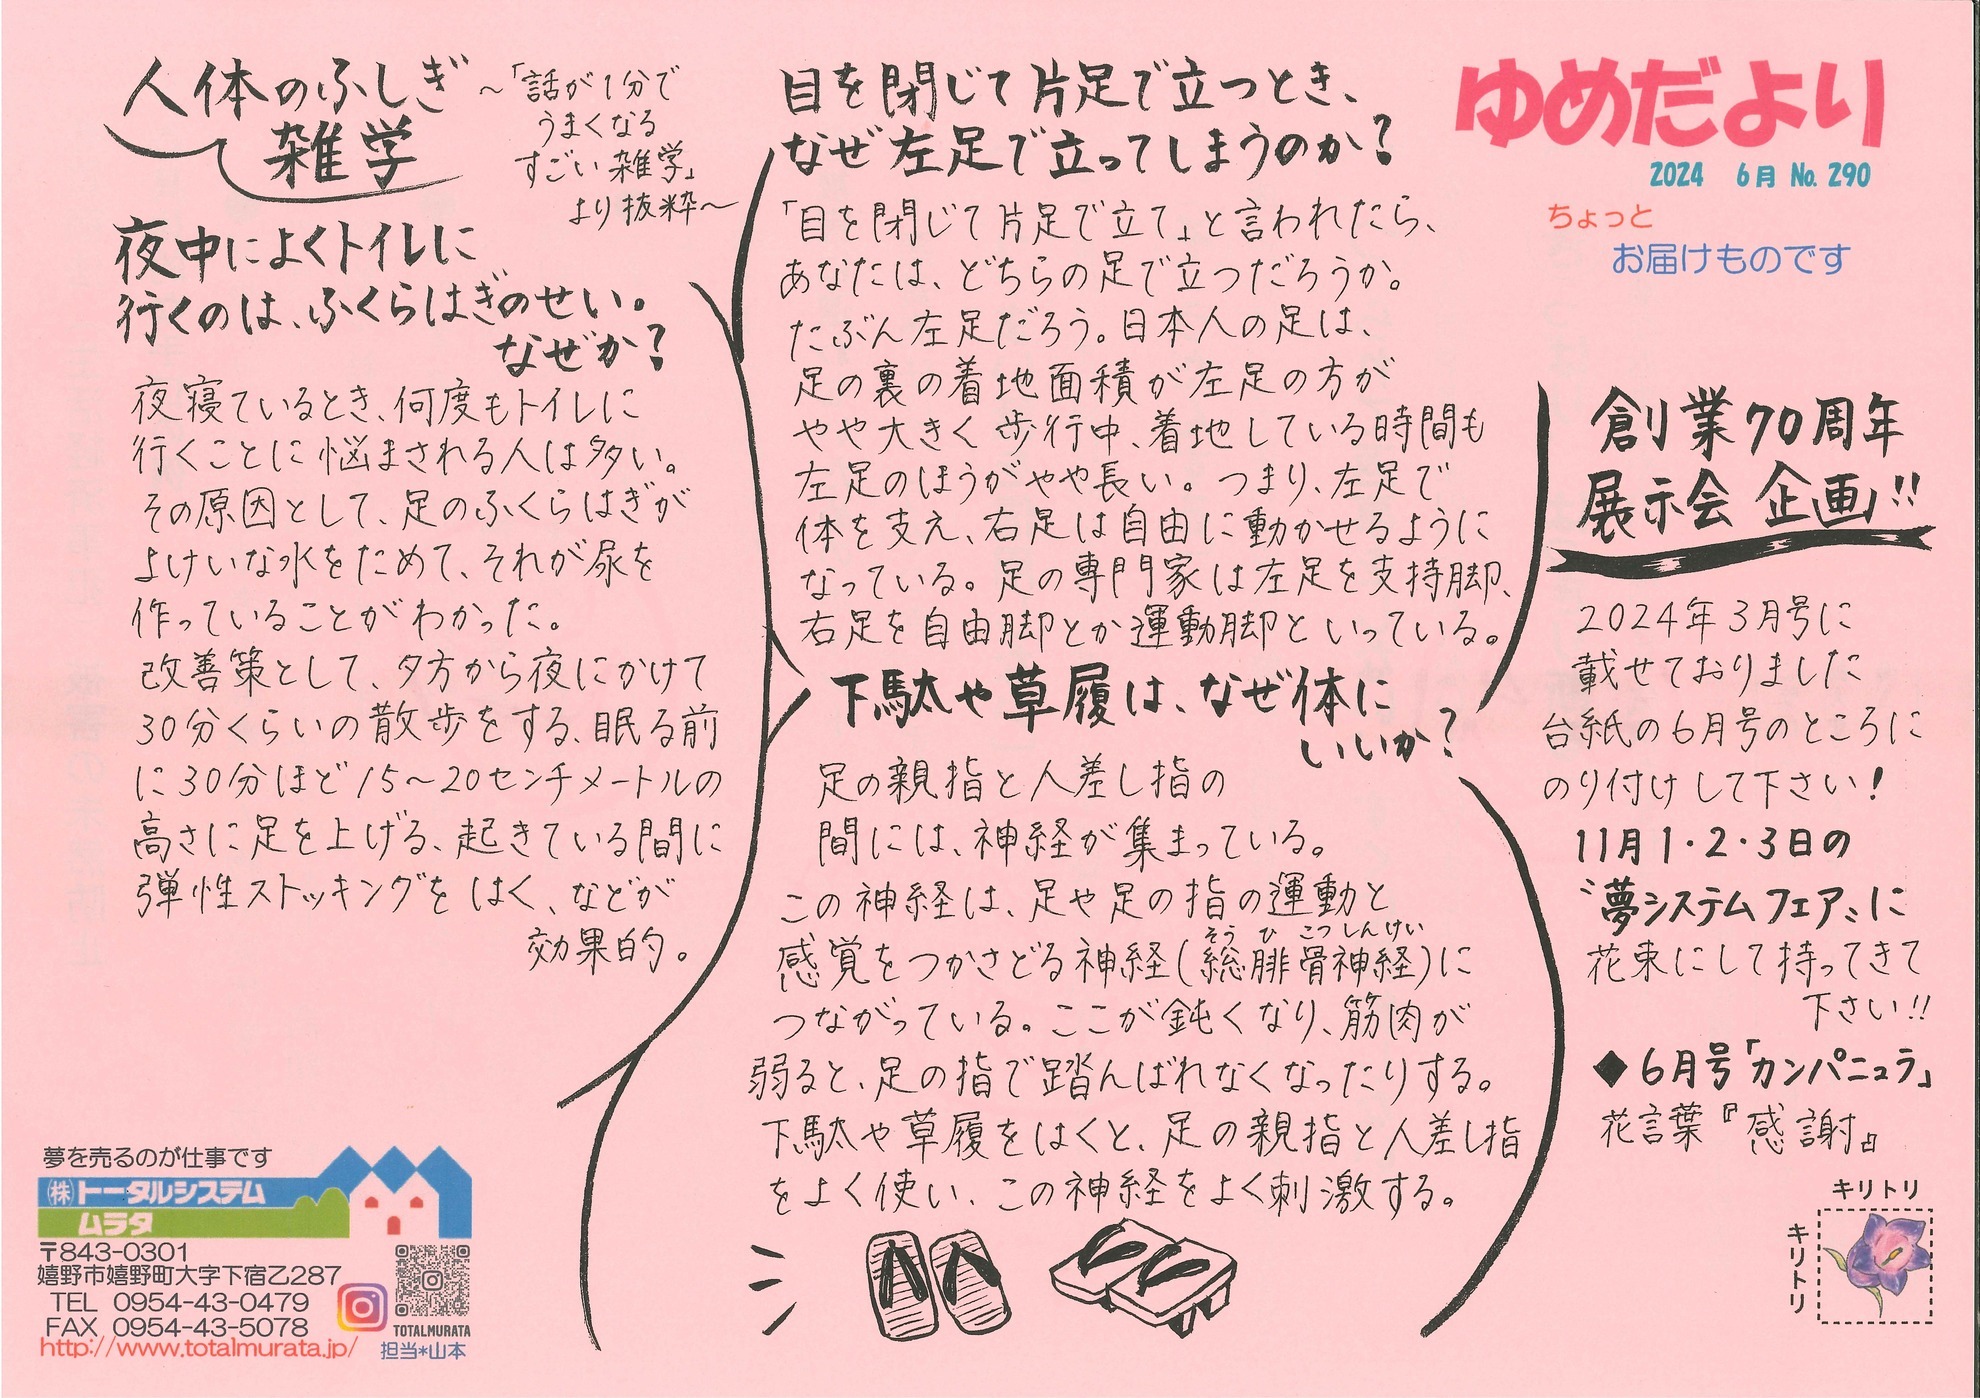 ゆめだより
2024 6月 No. 290
ちょっと
お届けものです
人体のふしぎ
雑学
～「話が1分で
うまくなる
すごい雑学」
より抜粋～
夜中によくトイレに
行くのは、ふくらはぎのせい。
なぜか?
夜寝ているとき、何度もトイレに
行くことに悩まされる人は多い。
その原因として、足のふくらはぎが
よけいな水をためて、それが尿を
作っていることがわかった。
改善策として、夕方から夜にかけて
30分くらいの散歩をする、眠る前
に30分ほど15～20センチメートルの
高さに足を上げる、起きている間に
弾性ストッキングをはく、などが
効果的。
目を閉じて片足で立つとき、
なぜ左足で立ってしまうのか?
「目を閉じて片足で立て」と言われたら、
あなたは、どちらの足で立つだろうか。
たぶん左足だろう。日本人の足は、
足の裏の着地面積が左足の方が
やや大きく歩行中、着地している時間も
左足のほうがやや長い。つまり、左足で
体を支え、右足は自由に動かせるように
なっている。足の専門家は左足を支持脚、
右足を自由脚とか運動脚といっている。
下駄や草履は、なぜ体に
いいか?
足の親指と人差し指の
間には、神経が集まっている。
この神経は、足や足の指の運動と
感覚をつかさどる神経(総腓骨神経)に
そう ひ こつ しんけい
つながっている。ここが鈍くなり、筋肉が
弱ると、足の指で踏んばれなくなったりする。
下駄や草履をはくと、足の親指と人差し指
をよく使い、この神経をよく刺激する。
創業70周年
展示会 企画!!
2024年3月号に
載せておりました
台紙の6月号のところに
のり付けして下さい!
11月1・2・3日の
〝夢システムフェア〟に
花束にして持ってきて
下さい!!
◆6月号「カンパニュラ」
花言葉『感謝』
キリトリ
キリトリ
夢を売るのが仕事です
㈱トータルシステム
ムラタ
〒843-0301
嬉野市嬉野町大字下宿乙287
TEL 0954-43-0479
FAX 0954-43-5078
http://www.totalmurata.jp/
TOTALMURATA
担当*山本